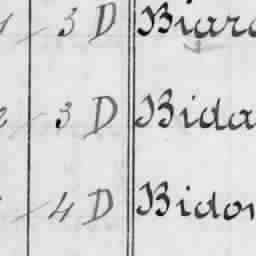 3 D Biard
3 D Bida
4 D Bidon